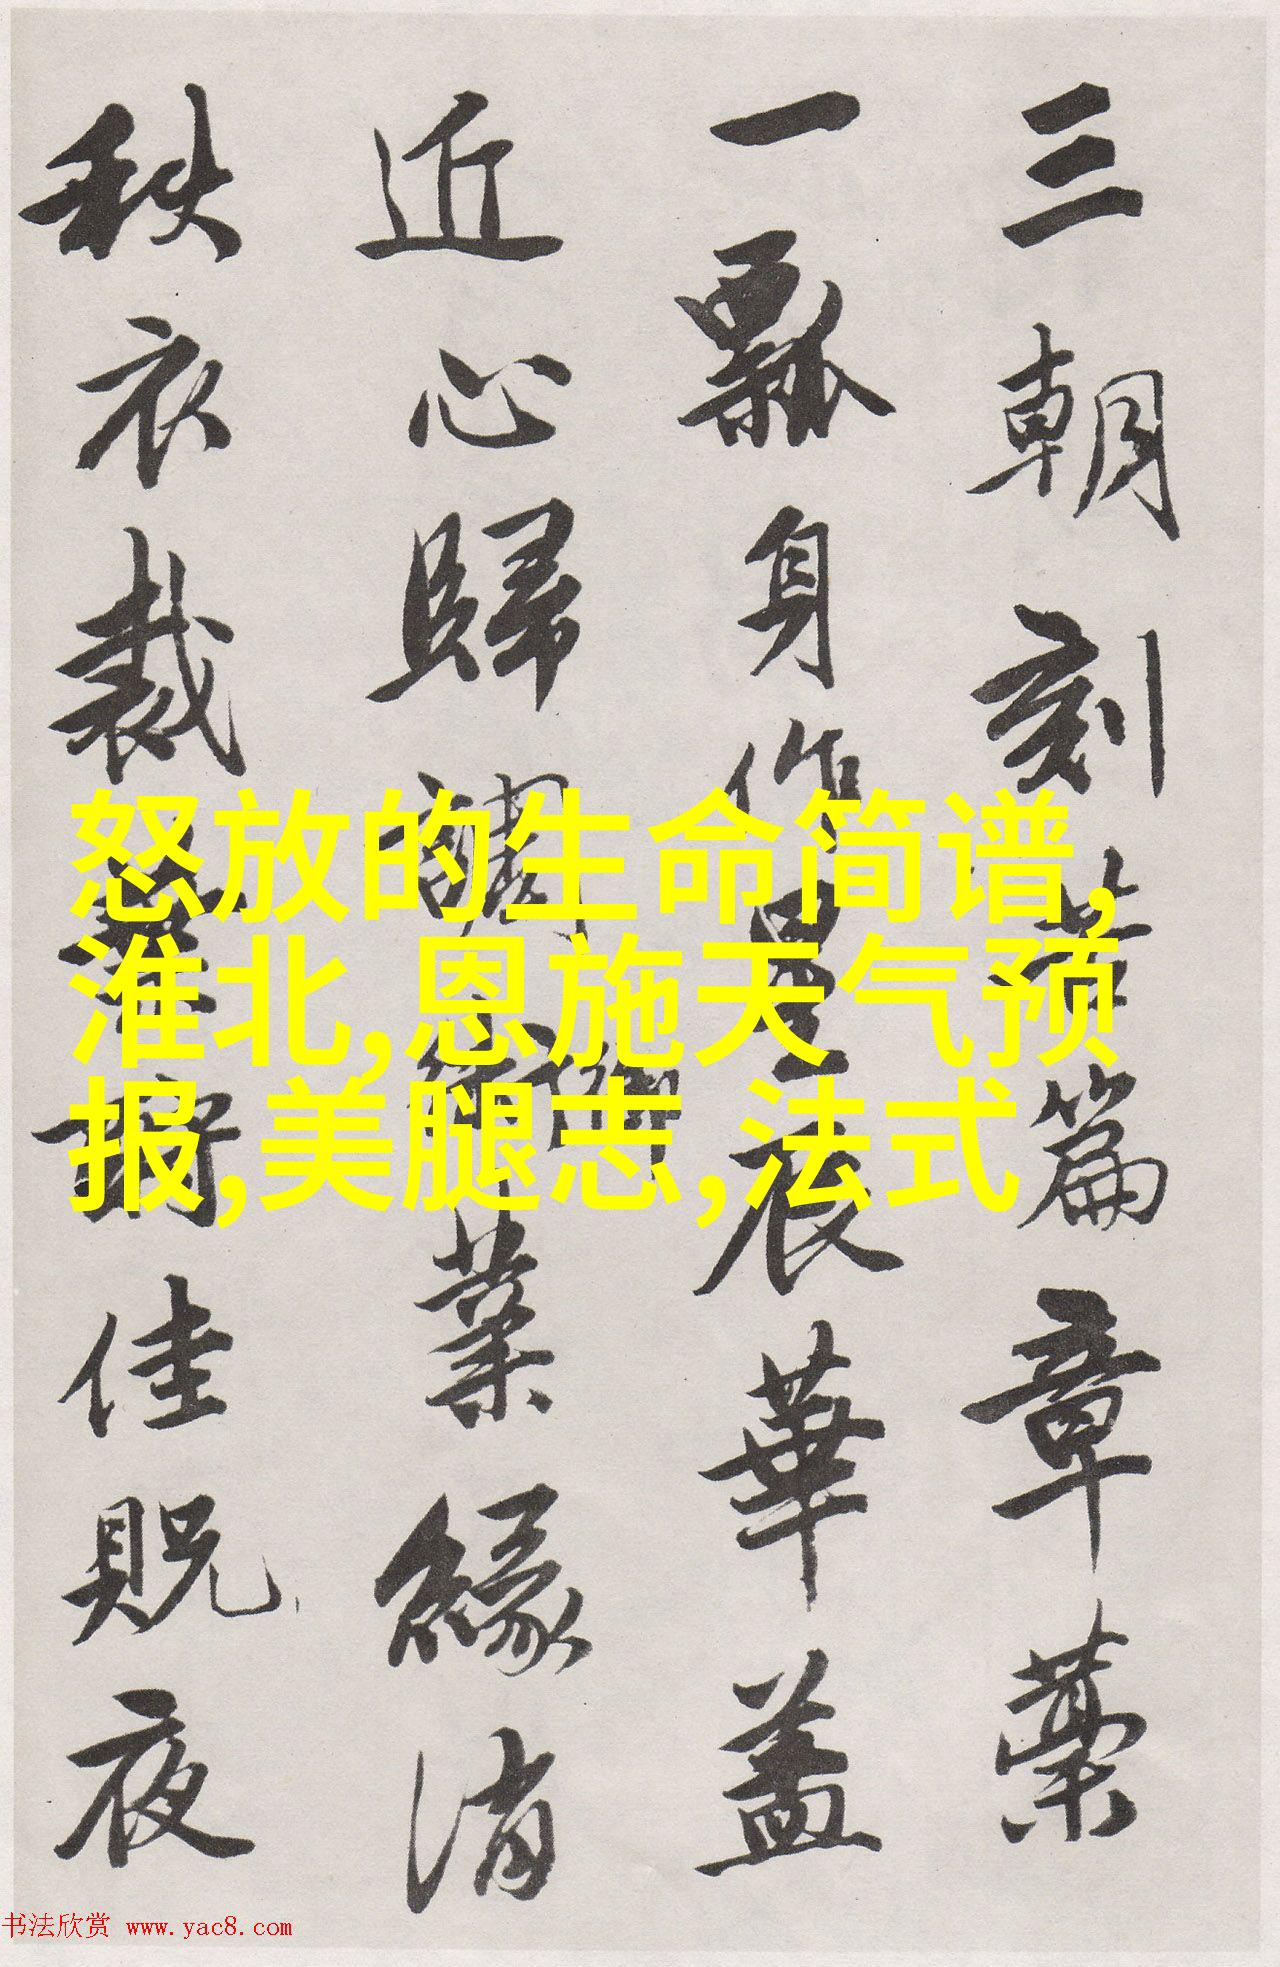 三朝刻苦篇章藁
一瓢身作星辰華蓋
近心歸調御業緣消
秩衣裁
佳貺夜
怒放的生命简谱,
淮北,恩施天气预
报,美腿志,法式
书法欣赏 www.yac8.com